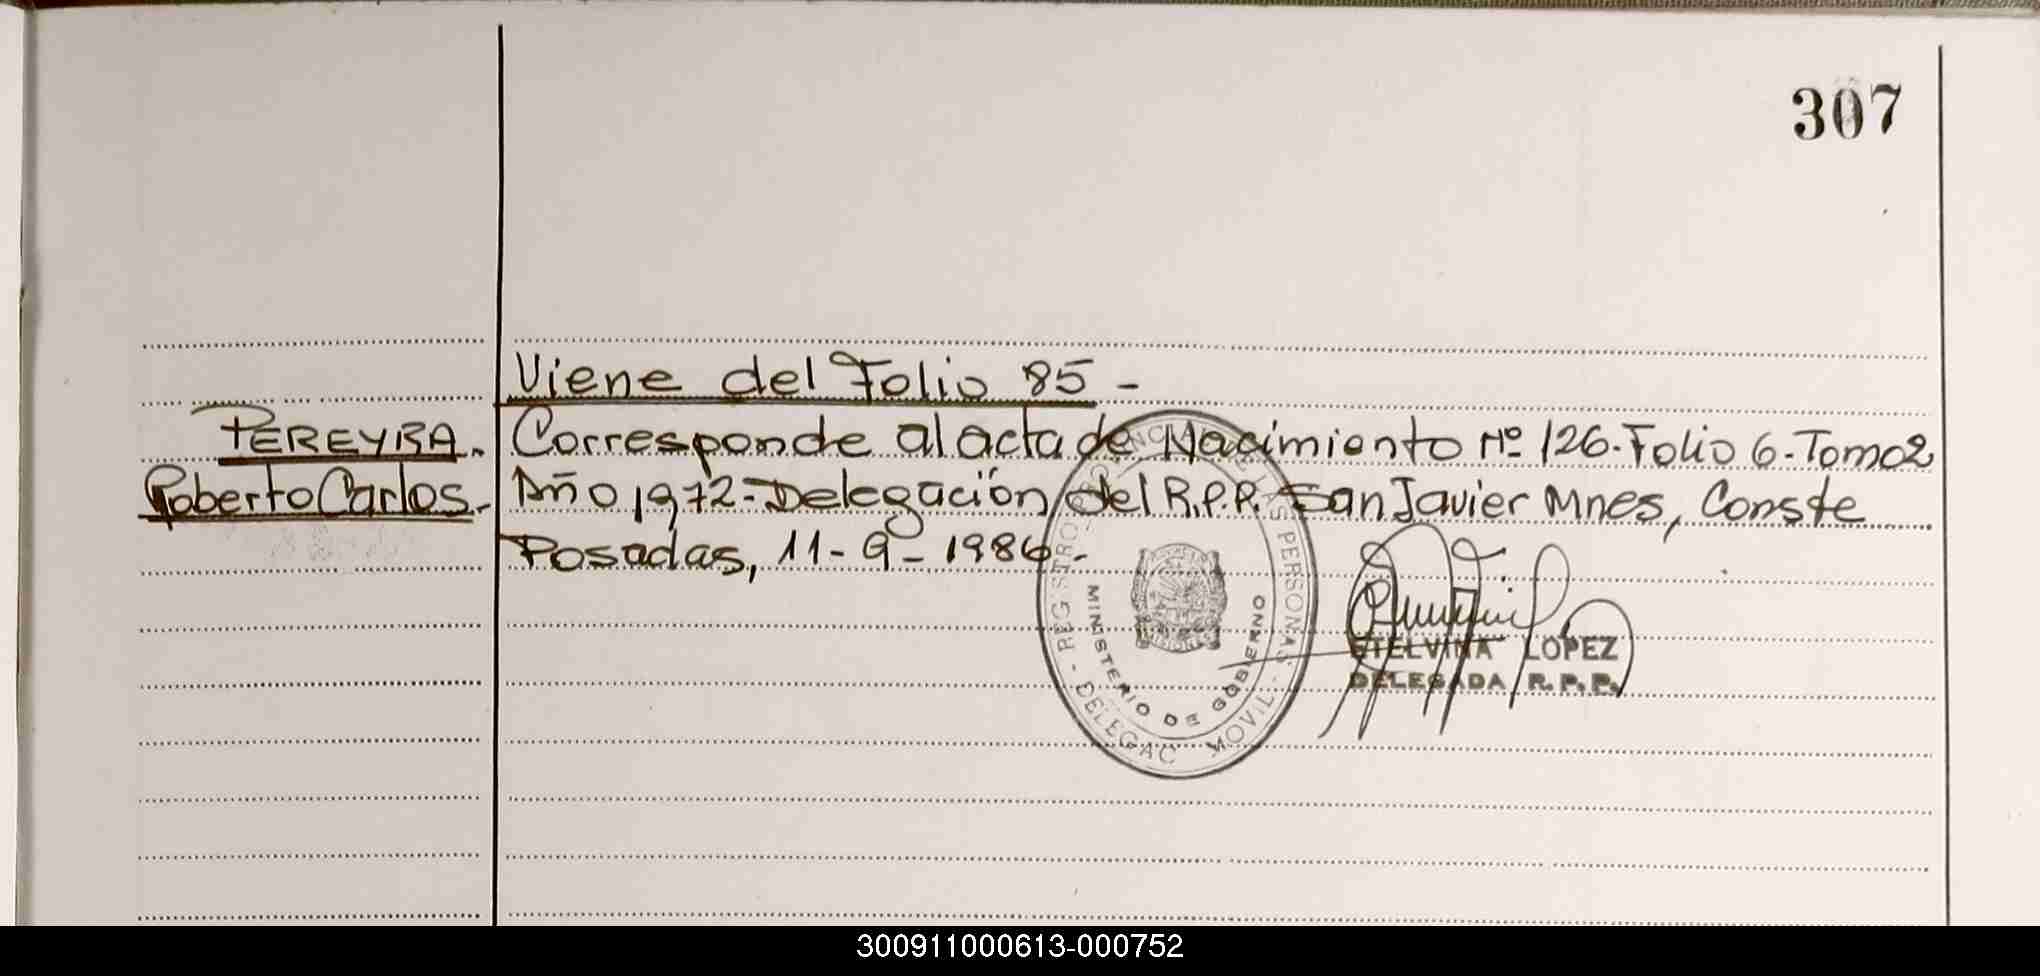 307
Viene del Folio 85 -
PEREYRA. Corresponde al acta de Nacimiento Nº 126. Folio 6. Tomo 2
Roberto Carlos.- Año 1972 - Delegación del R.P.P. San Javier Mnes, Conste
Posadas, 11 - 9 - 1986 -
REGISTRO PROVINCIAL DE LAS PERSONAS
MINISTERIO DE GOBIERNO
- DELEGAC MOVIL -
ETELVINA LOPEZ
DELEGADA R.P.P.
300911000613-000752